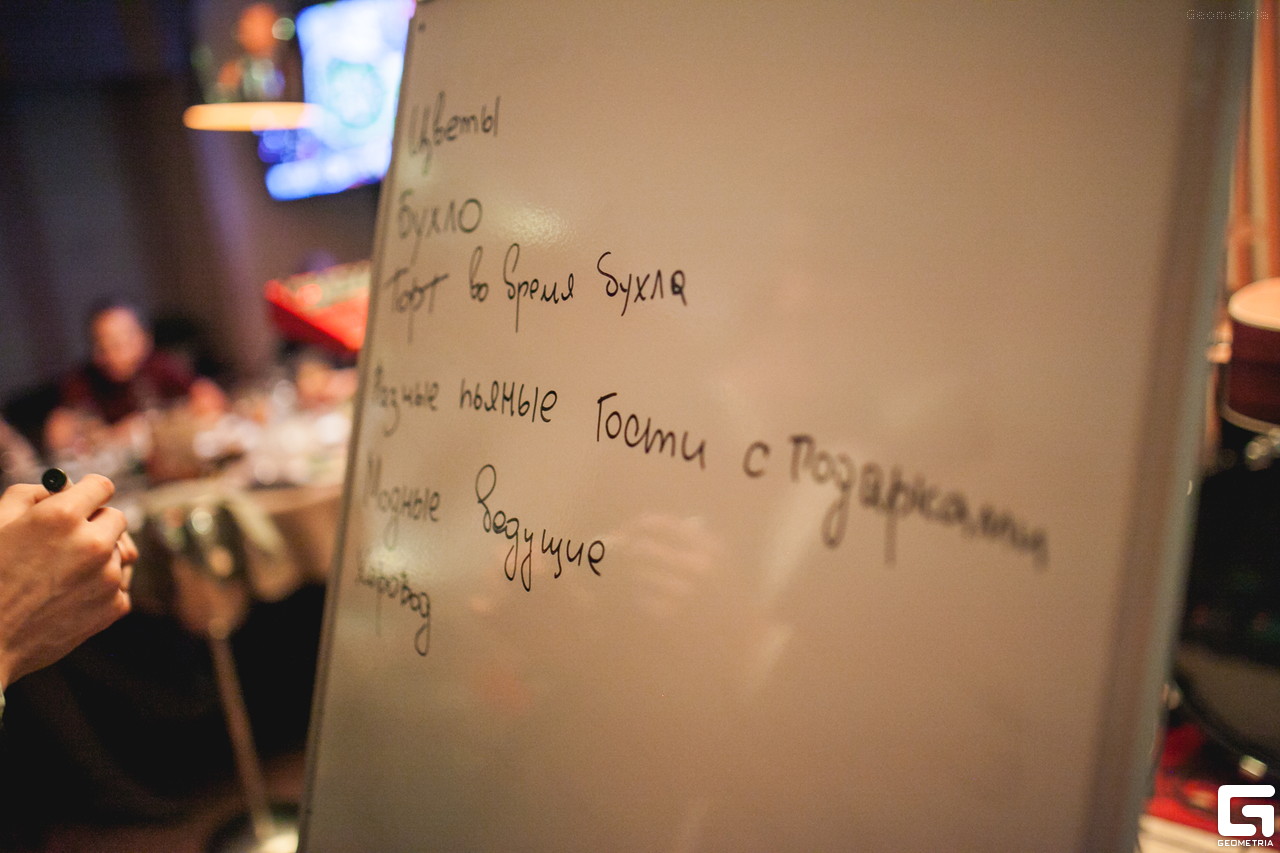 Geometria
Цветы
Бухло
Торт во время бухла
Разные пьяные Гости с Подарками
Модные Ведущие
Хоровод
GEOMETRIA